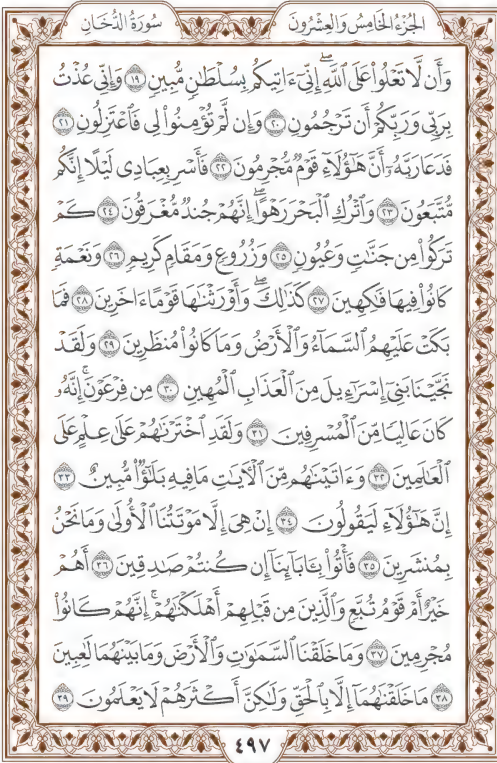 الجُزْءُ الخَامِسُ وَالعِشْرُونَ سُورَةُ الدُّخَانِ
وَأَن لَّا تَعْلُوا۟ عَلَى ٱللَّهِ ۖ إِنِّىٓ ءَاتِيكُم بِسُلْطَـٰنٍ مُّبِينٍ ١٩ وَإِنِّى عُذْتُ
بِرَبِّى وَرَبِّكُمْ أَن تَرْجُمُونِ ٢٠ وَإِن لَّمْ تُؤْمِنُوا۟ لِى فَٱعْتَزِلُونِ ٢١
فَدَعَا رَبَّهُۥٓ أَنَّ هَـٰٓؤُلَآءِ قَوْمٌ مُّجْرِمُونَ ٢٢ فَأَسْرِ بِعِبَادِى لَيْلًا إِنَّكُم
مُّتَّبَعُونَ ٢٣ وَٱتْرُكِ ٱلْبَحْرَ رَهْوًا ۖ إِنَّهُمْ جُندٌ مُّغْرَقُونَ ٢٤ كَمْ
تَرَكُوا۟ مِن جَنَّـٰتٍ وَعُيُونٍ ٢٥ وَزُرُوعٍ وَمَقَامٍ كَرِيمٍ ٢٦ وَنَعْمَةٍ
كَانُوا۟ فِيهَا فَـٰكِهِينَ ٢٧ كَذَٰلِكَ ۖ وَأَوْرَثْنَـٰهَا قَوْمًا ءَاخَرِينَ ٢٨ فَمَا
بَكَتْ عَلَيْهِمُ ٱلسَّمَآءُ وَٱلْأَرْضُ وَمَا كَانُوا۟ مُنظَرِينَ ٢٩ وَلَقَدْ
نَجَّيْنَا بَنِىٓ إِسْرَٰٓءِيلَ مِنَ ٱلْعَذَابِ ٱلْمُهِينِ ٣٠ مِن فِرْعَوْنَ ۚ إِنَّهُۥ
كَانَ عَالِيًا مِّنَ ٱلْمُسْرِفِينَ ٣١ وَلَقَدِ ٱخْتَرْنَـٰهُمْ عَلَىٰ عِلْمٍ عَلَى
ٱلْعَـٰلَمِينَ ٣٢ وَءَاتَيْنَـٰهُم مِّنَ ٱلْـَٔايَـٰتِ مَا فِيهِ بَلَـٰٓؤٌا۟ مُّبِينٌ ٣٣
إِنَّ هَـٰٓؤُلَآءِ لَيَقُولُونَ ٣٤ إِنْ هِىَ إِلَّا مَوْتَتُنَا ٱلْأُولَىٰ وَمَا نَحْنُ
بِمُنشَرِينَ ٣٥ فَأْتُوا۟ بِـَٔابَآئِنَآ إِن كُنتُمْ صَـٰدِقِينَ ٣٦ أَهُمْ
خَيْرٌ أَمْ قَوْمُ تُبَّعٍ وَٱلَّذِينَ مِن قَبْلِهِمْ ۚ أَهْلَكْنَـٰهُمْ ۖ إِنَّهُمْ كَانُوا۟
مُجْرِمِينَ ٣٧ وَمَا خَلَقْنَا ٱلسَّمَـٰوَٰتِ وَٱلْأَرْضَ وَمَا بَيْنَهُمَا لَـٰعِبِينَ
٣٨ مَا خَلَقْنَـٰهُمَآ إِلَّا بِٱلْحَقِّ وَلَـٰكِنَّ أَكْثَرَهُمْ لَا يَعْلَمُونَ ٣٩
٤٩٧